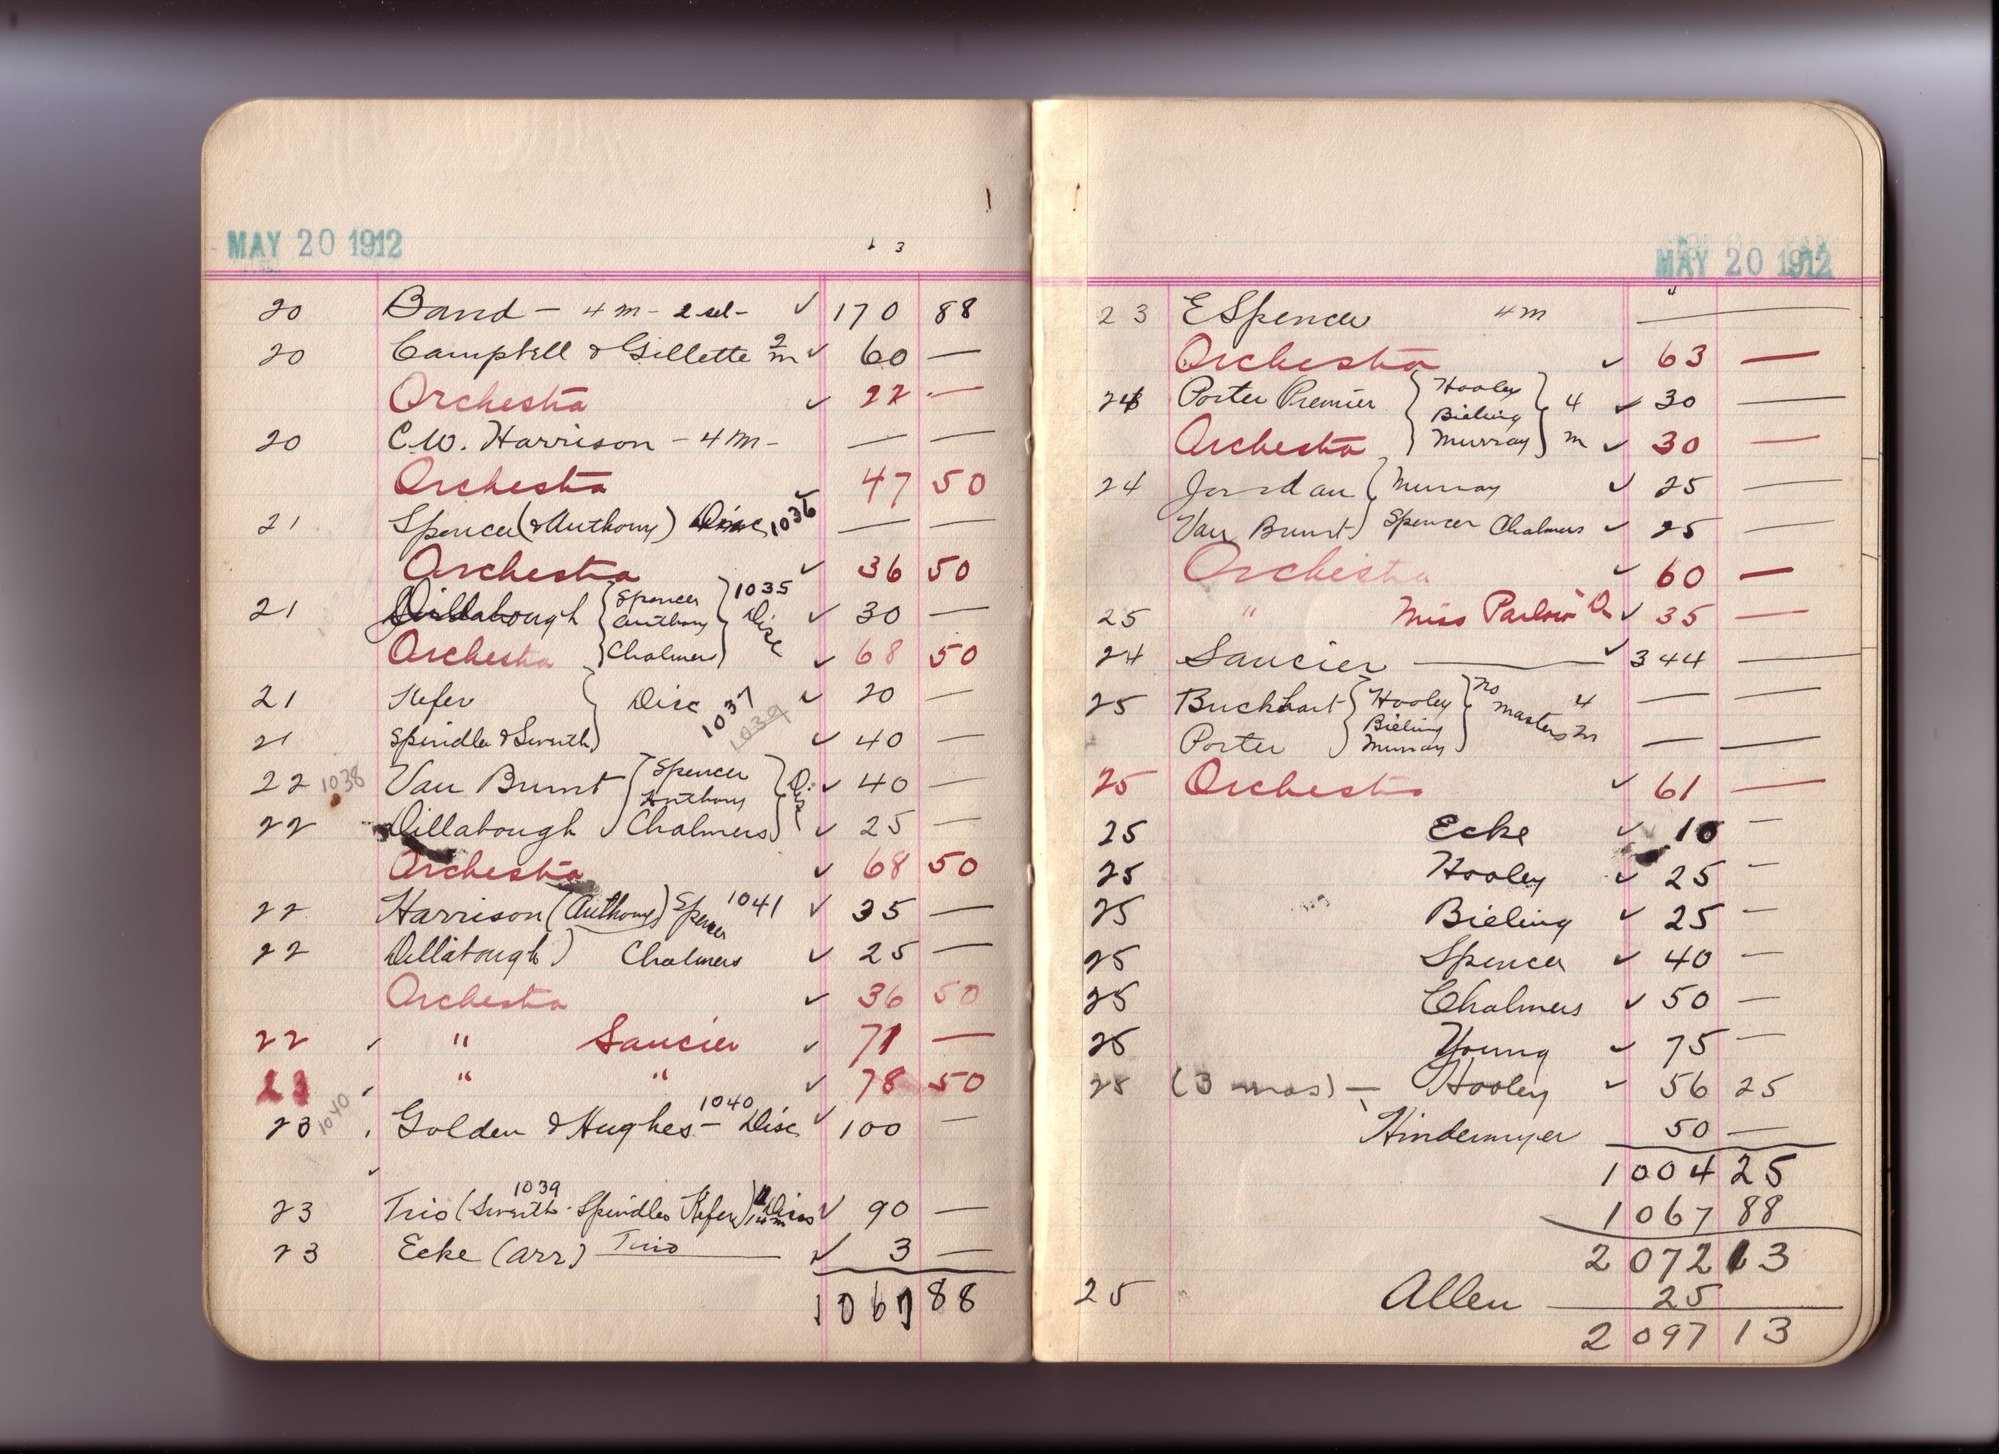 MAY 20 1912
20 Band - 4 m - 2 sel - ✓ 170 88
20 Campbell & Gillette 2 m ✓ 60 —
Orchestra ✓ 22 —
20 C.W. Harrison - 4 m - — —
Orchestra 47 50
21 Spencer (& Anthony) Disc 1036 ✓ — —
Orchestra ✓ 36 50
21 Dillabough { Spencer Anthony Chalmers } 1035 Disc ✓ 30 —
Orchestra ✓ 68 50
21 Kefer } Disc 1037 1039 ✓ 20 —
21 Spindler & Swerth } ✓ 40 —
22 1038 Van Brunt { Spencer Anthony } Disc ✓ 40 —
22 Dillabough Chalmers ✓ 25 —
Orchestra ✓ 68 50
22 Harrison (Anthony) Spencer 1041 ✓ 35 —
22 Dillabough ) Chalmers ✓ 25 —
Orchestra ✓ 36 50
22 " Saucier ✓ 71 —
23 " " ✓ 78 50
23 1040 Golden & Hughes - 1040 Disc ✓ 100 —
23 Trio (Swerth - Spindler Kefer) 1039 ✓ 90 —
23 Ecke (arr) Trio ✓ 3 —
1067 88
MAY 20 1912
23 E Spencer 4 m —
Orchestra ✓ 63 —
24 Porter Premier { Hooley Bieling Murray } 4 m ✓ 30 —
Orchestra ✓ 30 —
24 Jordan { Murray ✓ 25 —
Van Brunt ) Spencer Chalmers ✓ 25 —
Orchestra ✓ 60 —
25 " Miss Parlow ✓ 35 —
24 Saucier — ✓ 344 —
25 Buckhart { Hooley Bieling Murray } no masters 4 m — —
Porter — —
25 Orchestra ✓ 61 —
25 Ecke ✓ 10 —
25 Hooley ✓ 25 —
25 Bieling ✓ 25 —
25 Spencer ✓ 40 —
25 Chalmers ✓ 50 —
25 Young ✓ 75 —
28 (3 mas) - Hooley ✓ 56 25
Hindermyer 50 —
1004 25
1067 88
2072 13
25 Allen — 25
2097 13